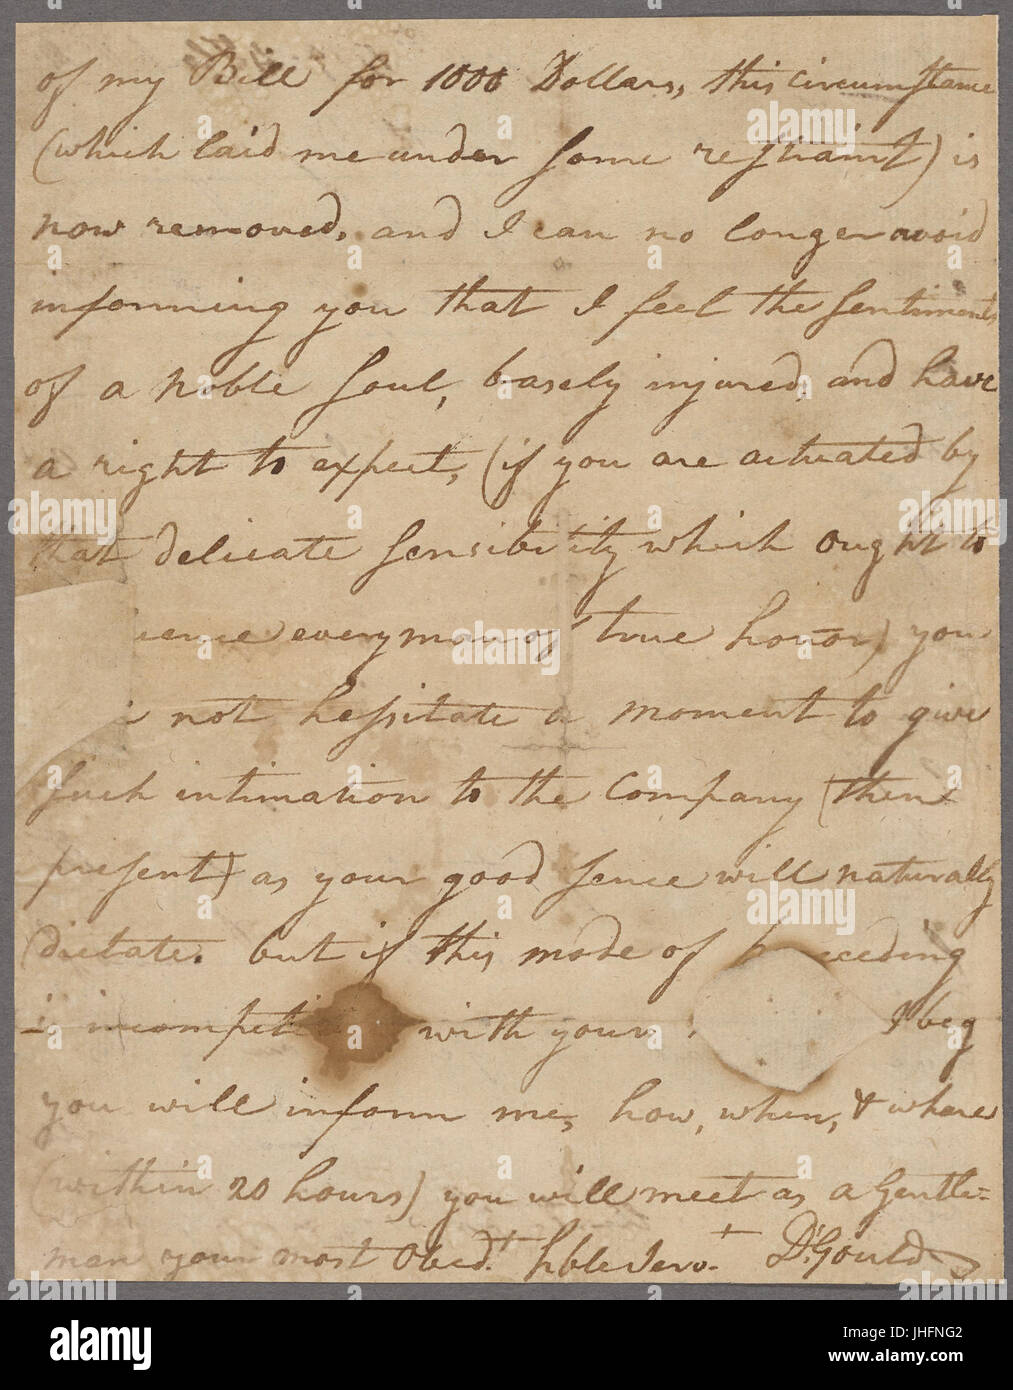 of my Bill for 1000 Dollars, this circumstance
(which laid me under some restraint) is
now removed, and I can no longer avoid
informing you that I feel the sentiments
of a noble soul, basely injured, and have
a right to expect, (if you are actuated by
that delicate sensibility which ought to
every man of true honor) you
not hessitate a moment to give
such intimation to the Company (then
present) as your good sence will naturally
dictate. but if this mode of
is with your I beg
you will inform me, how, when, & where
(within 20 hours) you will meet as a Gentle=
man your most Obedt. hble Servt. Dd. Gould
alamy stock photo
alamy
Image ID: JHFNG2
www.alamy.com